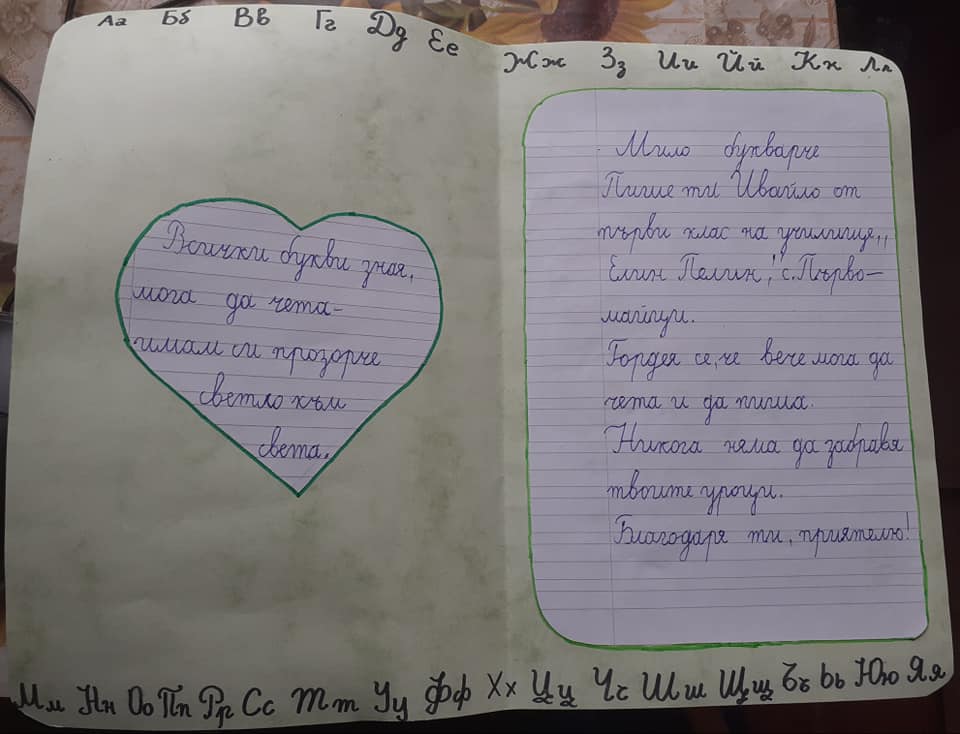 Аа Бб Вв Гг Дд Ее
Жж Зз Ии Йй Кк Лл
Всички букви зная,
мога да чета-
имам си прозорче
светло към
света.
Мило букварче
Пише ти Ивайло от
първи клас на училище,,
Елин Пелин," с. Първо-
майци.
Гордея се, че вече мога да
чета и да пиша.
Никога няма да забравя
твоите уроци.
Благодаря ти, приятелю!
Мм Нн Оо Пп Рр Сс Тт Уу Фф Хх Цц Чч Шш Щщ Ъъ ьь Юю Яя